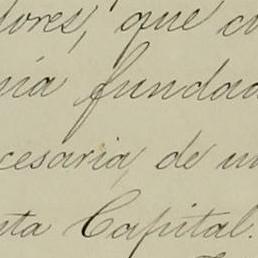 dores, que cu
nía fundad
cesaria, de un
sta Capital.